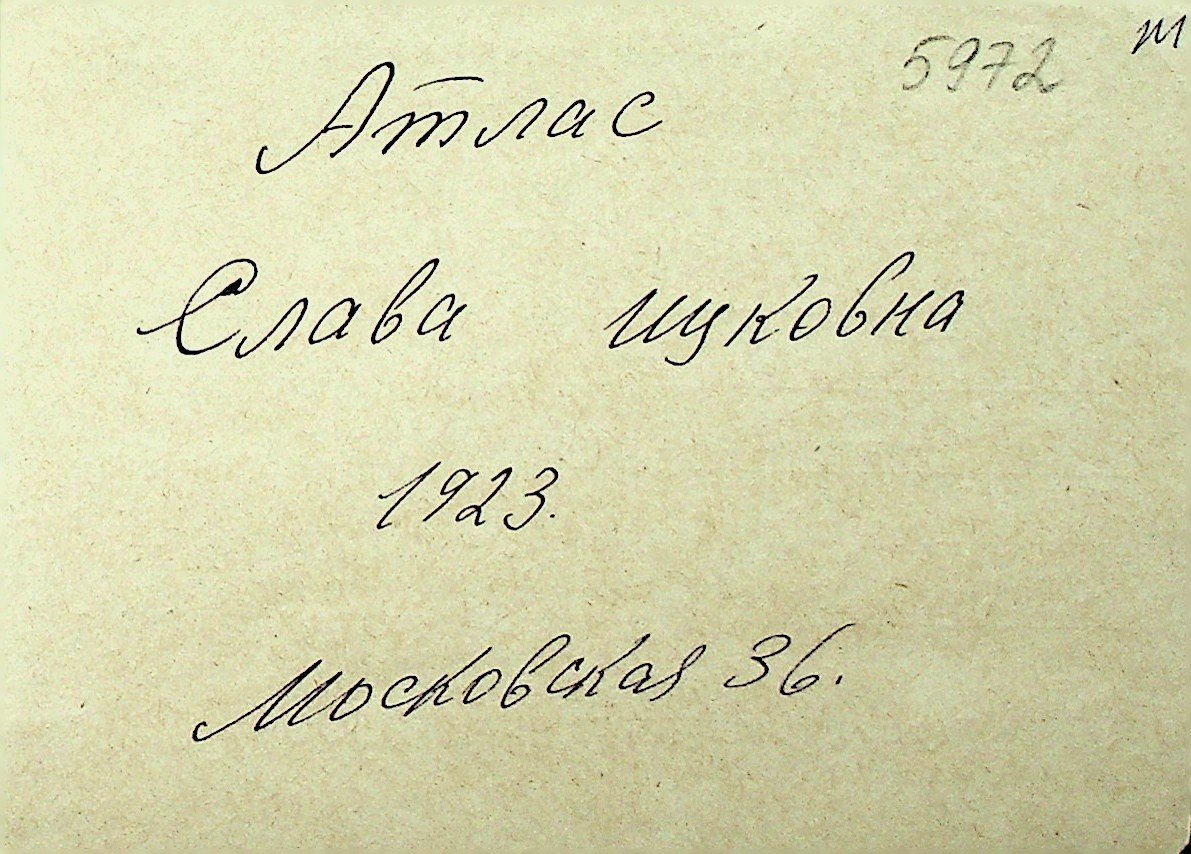 5972 т
Атлас
Слава ицковна
1923.
Московская 36.